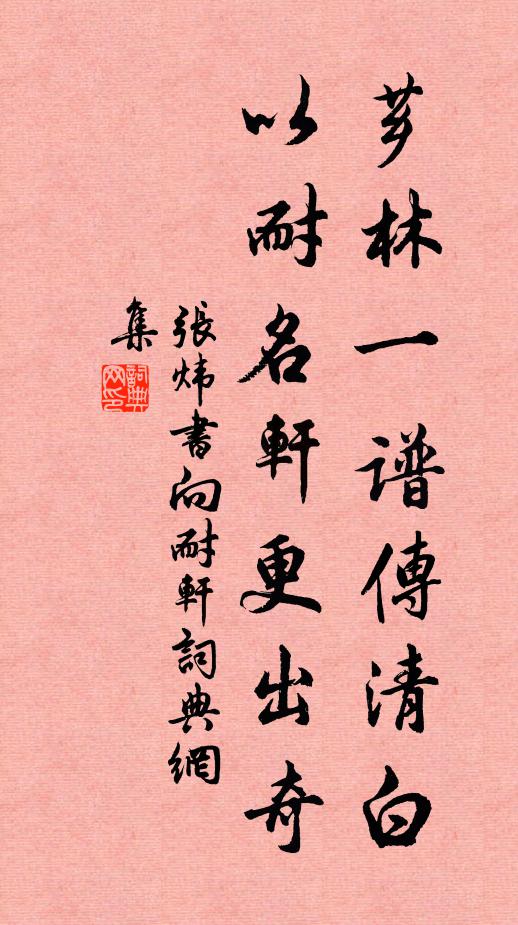 芗林一谱傳清白
以耐名軒更出奇
張炜書向耐軒詞典網
集
詞典网印